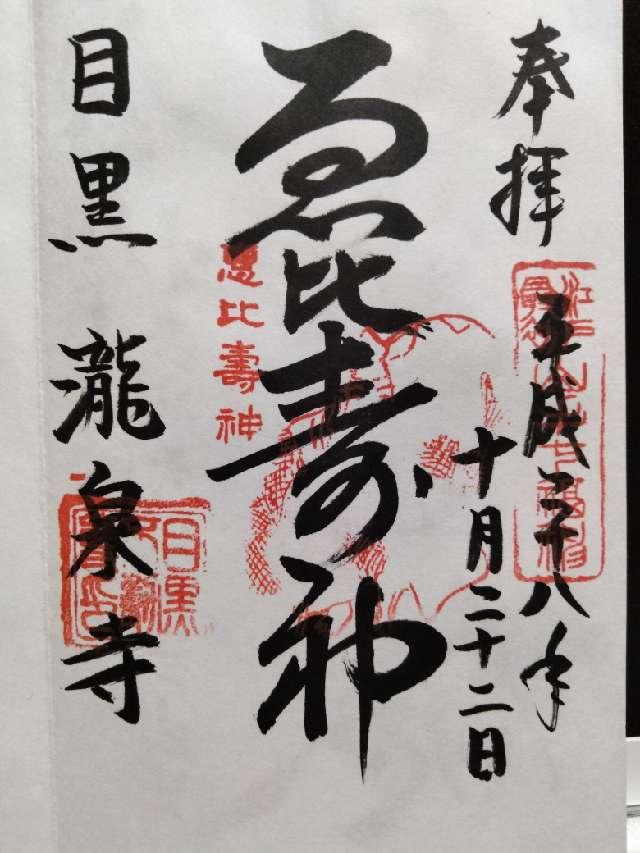 奉拝
平成二十八年
十月二十二日
恵比寿神
恵比壽神
目黒 瀧泉寺